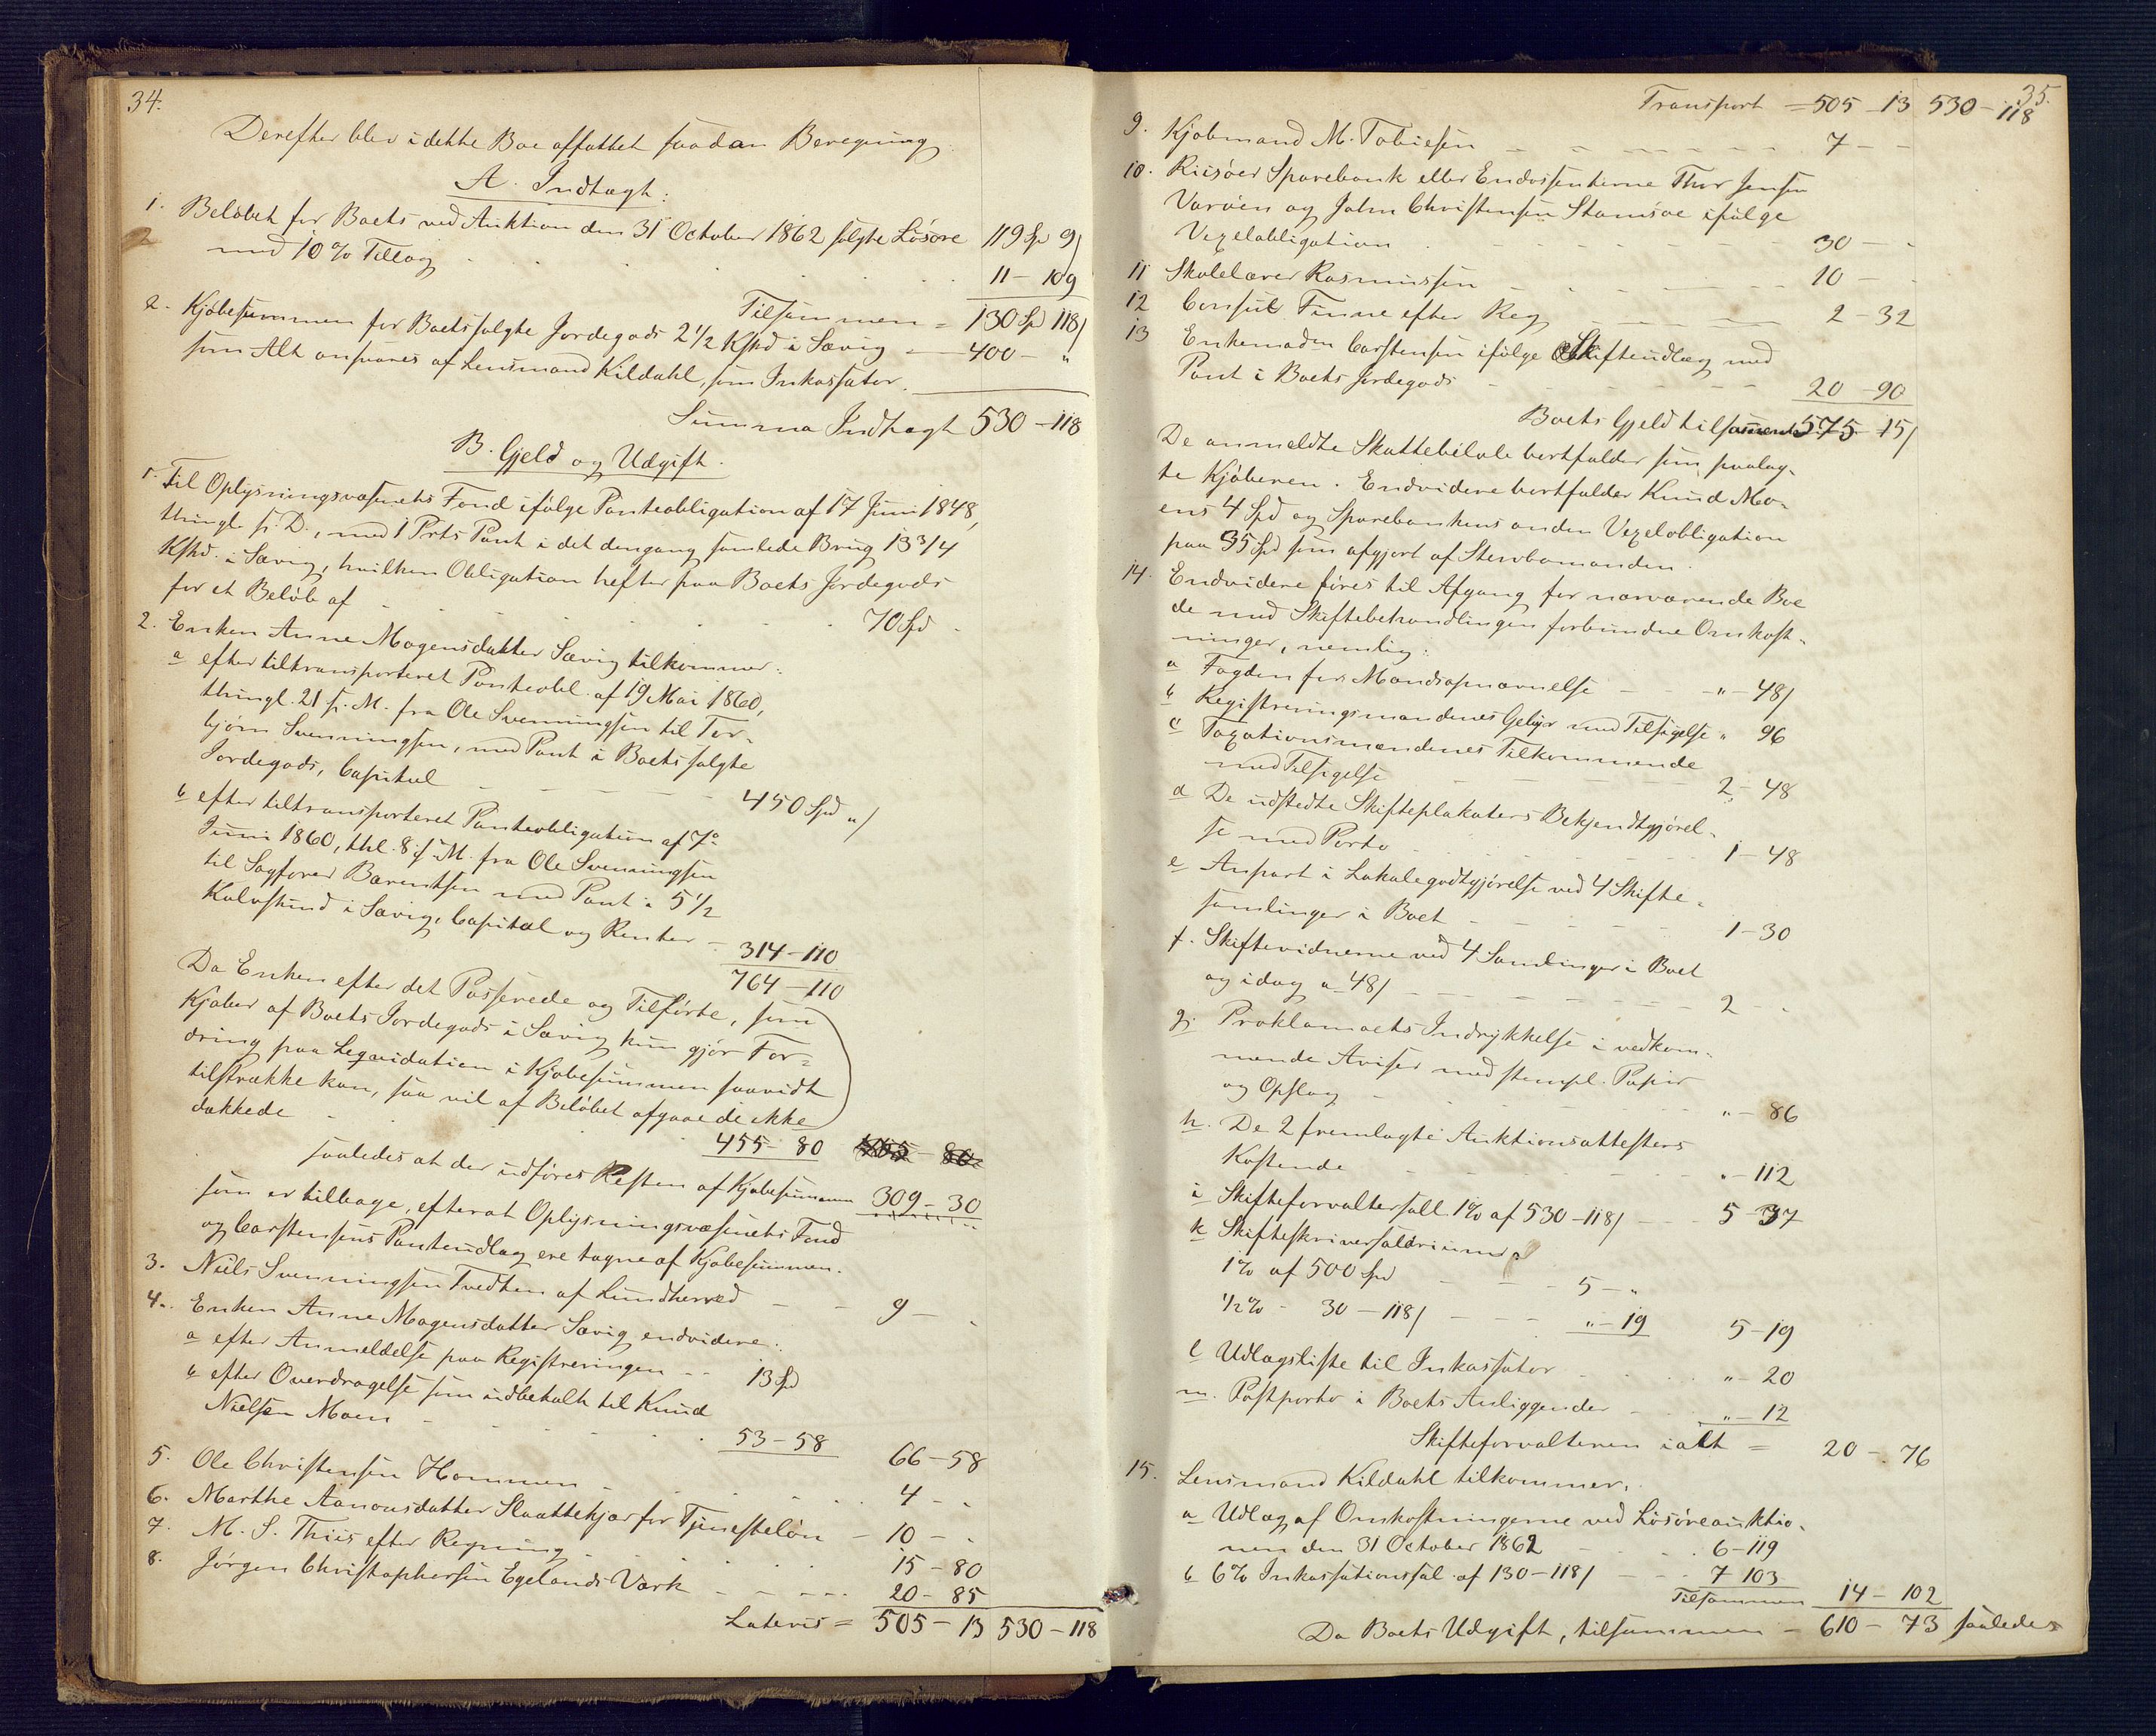 34.
Derefter blev i dette Boe affattet saadan Beregning
A. Indtægt:
1. Beløbet for Boets ved Auktion den 31 October 1862 solgte Løsøre 119 Spd 9/
med 10 % Tillæg 11 - 109
Tilsammen = 130 Spd 118/
2. Kjøbesummen for Boets solgte Jordegods 2 1/2 Kskd i Sævig - 400 - "
som Alt ansvares af Lensmand Kildahl, som Inkassator.
Summa Indtægt 530 - 118
B. Gjeld og Udgift.
1. Til Oplysningsvæsenets Fond ifølge Panteobligation af 17 Juni 1848,
thingl. s. D., med 1 Prts Pant i det dengang samlede Brug 13 3/4
Kskd. i Sævig, hvilken Obligation hefter paa Boets Jordegods
for et Beløb af 70 Spd -
2. Enken Anne Mogensdatter Sævig tilkommer:
a efter tiltransporteret Panteobl. af 19 Mai 1860,
thingl. 21 s. M. fra Ole Svenningsen til Tor-
bjørn Svenningsen, med Pant i Boets solgte
Jordegods, Capital 450 Spd "/
b efter tiltransporteret Panteobligation af 7de
Juni 1860, thl. 8 s. M. fra Ole Svenningsen
til Sagfører Barentsen med Pant i 5 1/2
Kalvskind i Sævig, Capital og Renter - 314 - 110
764 - 110
Da Enken efter det Passerede og Tilførte, som
Kjøber af Boets Jordegods i Sævig kun gjør For-
dring paa Leqvidation i Kjøbesummen saavidt
tilstrække kan, saa vil af Beløbet afgaae de ikke
dækkede 455 - 80
saaledes at der udføres Resten af Kjøbesummen 309 - 30
som er tilbage, efterat Oplysningsvæsenets Fond
og Carstensens Panteudlæg ere tagne af Kjøbesummen.
3. Niels Svenningsen Tvedten af Sundherred - - 9 - -
4. Enken Anne Mogensdatter Sævig endvidere:
a efter Anmeldelse paa Registreringen - - 13 Spd
b efter Overdragelse som udbetalt til Knud
Nielsen Moen 53 - 58 66 - 58
5. Ole Christensen Hommen 4 - -
6. Marthe Aanonsdatter Slaattekjær for Tjenesteløn - 10 - -
7. M. S. Thiis efter Regning 15 - 80
8. Jørgen Christophersen Egelands Værk 20 - 85
Lateris = 505 - 13 530 - 118
35.
Transport = 505 - 13 530 - 118
9. Kjøbmand M. Tobiesen 7 - -
10. Riisøer Sparebank eller Endossenterne Thor Jensen
Varøen og John Christensen Stamsøe ifølge
Vexelobligation 30 - -
11 Skolelærer Rasmussen 10 - -
12 Consul Finne efter Reg 2 - 32
13 Enkemadam Carstensen ifølge Skifteudlæg med
Pant i Boets Jordegods 20 - 90
Boets Gjeld tilsammen 575 - 15/
De anmeldte Skattebeløb bortfalder som paalag-
te Kjøberen. Endvidere bortfalder Knud Mo-
ens 4 Spd og Sparebankens anden Vexelobligation
paa 35 Spd som afgjort af Stervbomanden.
14. Endvidere føres til Afgang for nærværende Boe
de med Skiftebehandlingen forbundne Omkost-
ninger, nemlig:
a Fogden for Mandsopnævnelse - - " - 48/
b Registreringsmændenes Gebyr med Tilsigelse " 96
c Taxationsmændenes Tilkommende
med Tilsigelse 2 - 48
d De udstedte Skifteplakaters Bekjendtgjørel-
se med Porto 1 - 48
e Anpart i Lokalegodtgjørelse ved 4 Skifte-
samlinger i Boet 1 - 30
f. Skiftevidnerne ved 4 Samlinger i Boet
og idag a 48/ 2 - -
g. Proklamaets Indrykkelse i vedkom-
mende Aviser med stempl. Papir
og Opslag " - 86
h. De 2 fremlagte Auktionsattesters
Kostende " - 112
i Skifteforvaltersall. 1% af 530 - 118/ - - 5 - 37
k Skifteskriversalærium
1% af 500 Spd - - - 5 - "
1/2 % - 30 - 118/ - - - " - 19 5 - 19
l Udlægsliste til Inkassator " - 20
m. Postporto i Boets Anliggender " - 12
Skifteforvalteren ialt = 20 - 76
15. Lensmand Kildahl tilkommer,
a Udlæg af Omkostningerne ved Løsøreauktio-
nen den 31 October 1862 6 - 119
b 6% Inkassationssal. af 130 - 118/ - - 7 103
Tilsammen 14 - 102
Da Boets Udgift, tilsammen - 610 - 73 saaledes